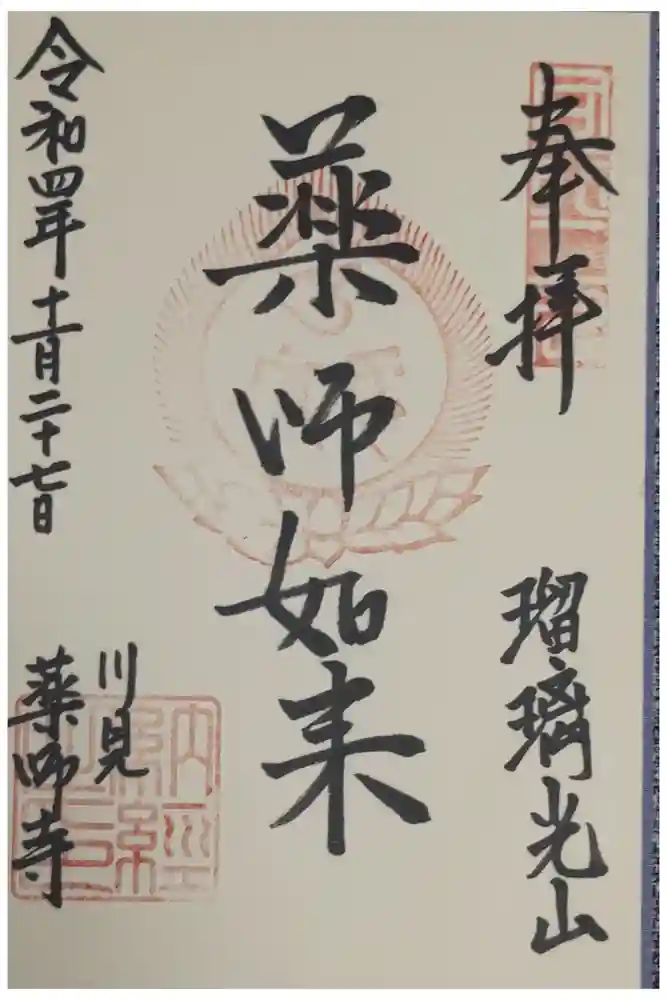 奉拝
瑠璃光山
薬師如来
令和四年十一月二十七日
川見
薬師寺